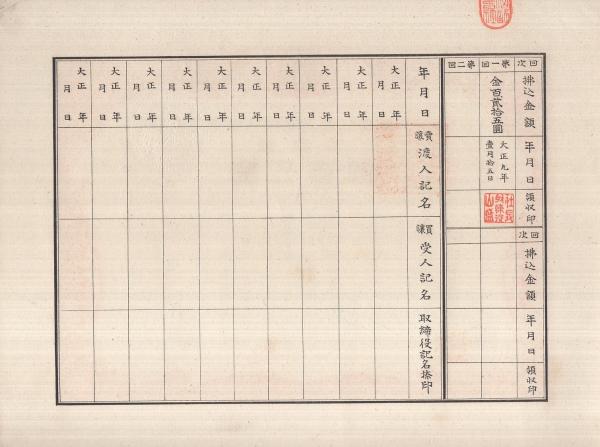 回次
拂込金額
年月日
領収印
第一回
金百貳拾五圓
大正九年
壹月拾五日
第二回
回次
拂込金額
年月日
領収印
年月日
賣讓渡人記名
買讓受人記名
取締役記名捺印
大正 年 月 日
大正 年 月 日
大正 年 月 日
大正 年 月 日
大正 年 月 日
大正 年 月 日
大正 年 月 日
大正 年 月 日
大正 年 月 日